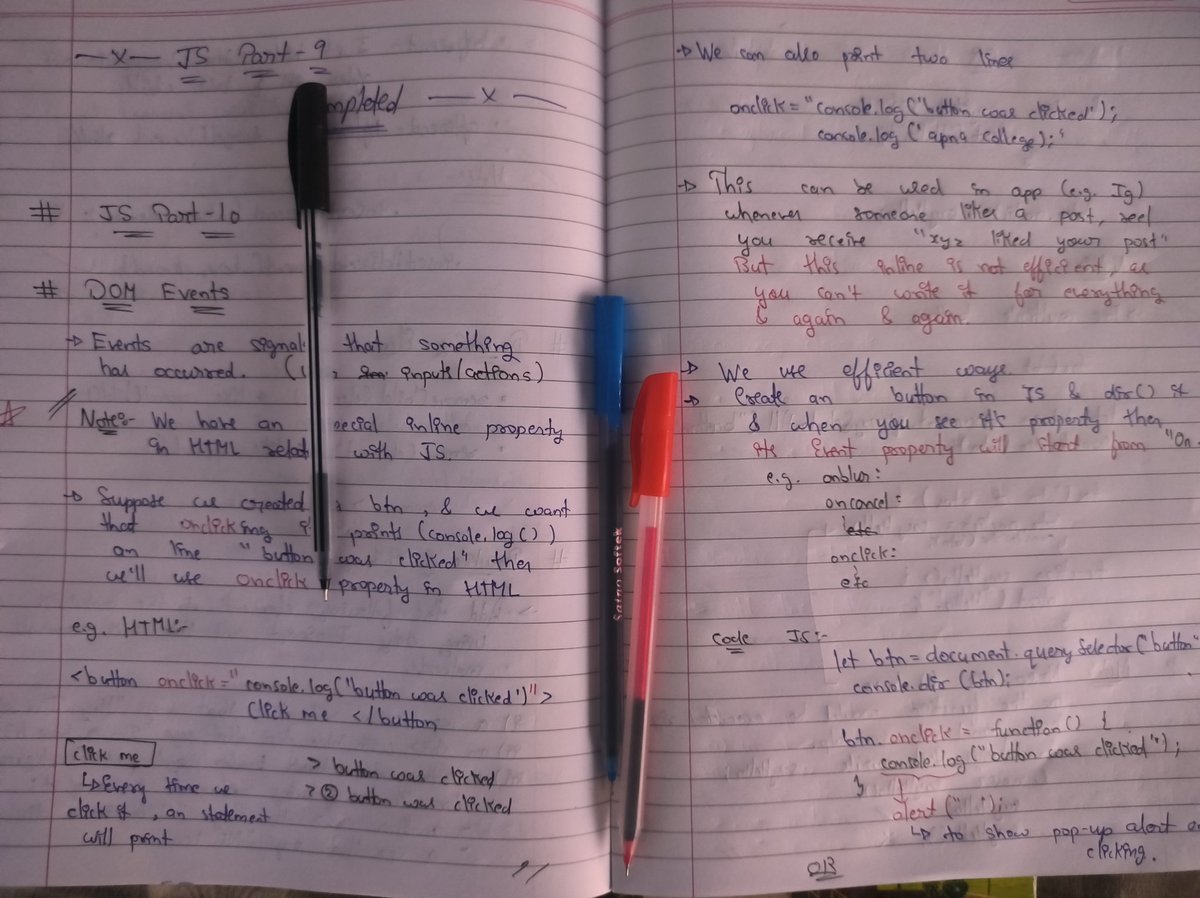 —x— JS Part-9
mpleted —x—
# JS Part-10
# DOM Events
→ Events are signal that something
has occurred. ( inputs/actions)
Note:- We have an ecial inline property
in HTML relat with JS.
→ Suppose we created btn, & we want
that onclicking prints (console.log())
an line "button was clicked" then
we'll use onclick property in HTML
e.g. HTML:-
<button onclick="console.log("button was clicked")">
Click me </button
click me
↳ Every time we
click it, an statement
will print
> button was clicked
> ② button was clicked
→ We can also print two lines
onclick="console.log("button was clicked");
console.log("apna college);"
→ This can be used in app (e.g. Ig)
whenever someone likes a post, reel
you receive "xyz liked your post"
But this inline is not efficient, as
you can't write it for everything
& again & again.
→ We use efficient ways.
→ Create an button in JS & dir() it
& when you see it's property then
its Event property will start from "On
e.g. onblur:
oncancel:
etc
onclick:
etc
Code JS:-
let btn = document.querySelector("button"
console.dir(btn);
btn.onclick = function() {
console.log("button was clicked");
}
alert(" ");
↳ to show pop-up alert
clicking.
OR
Satru Softek